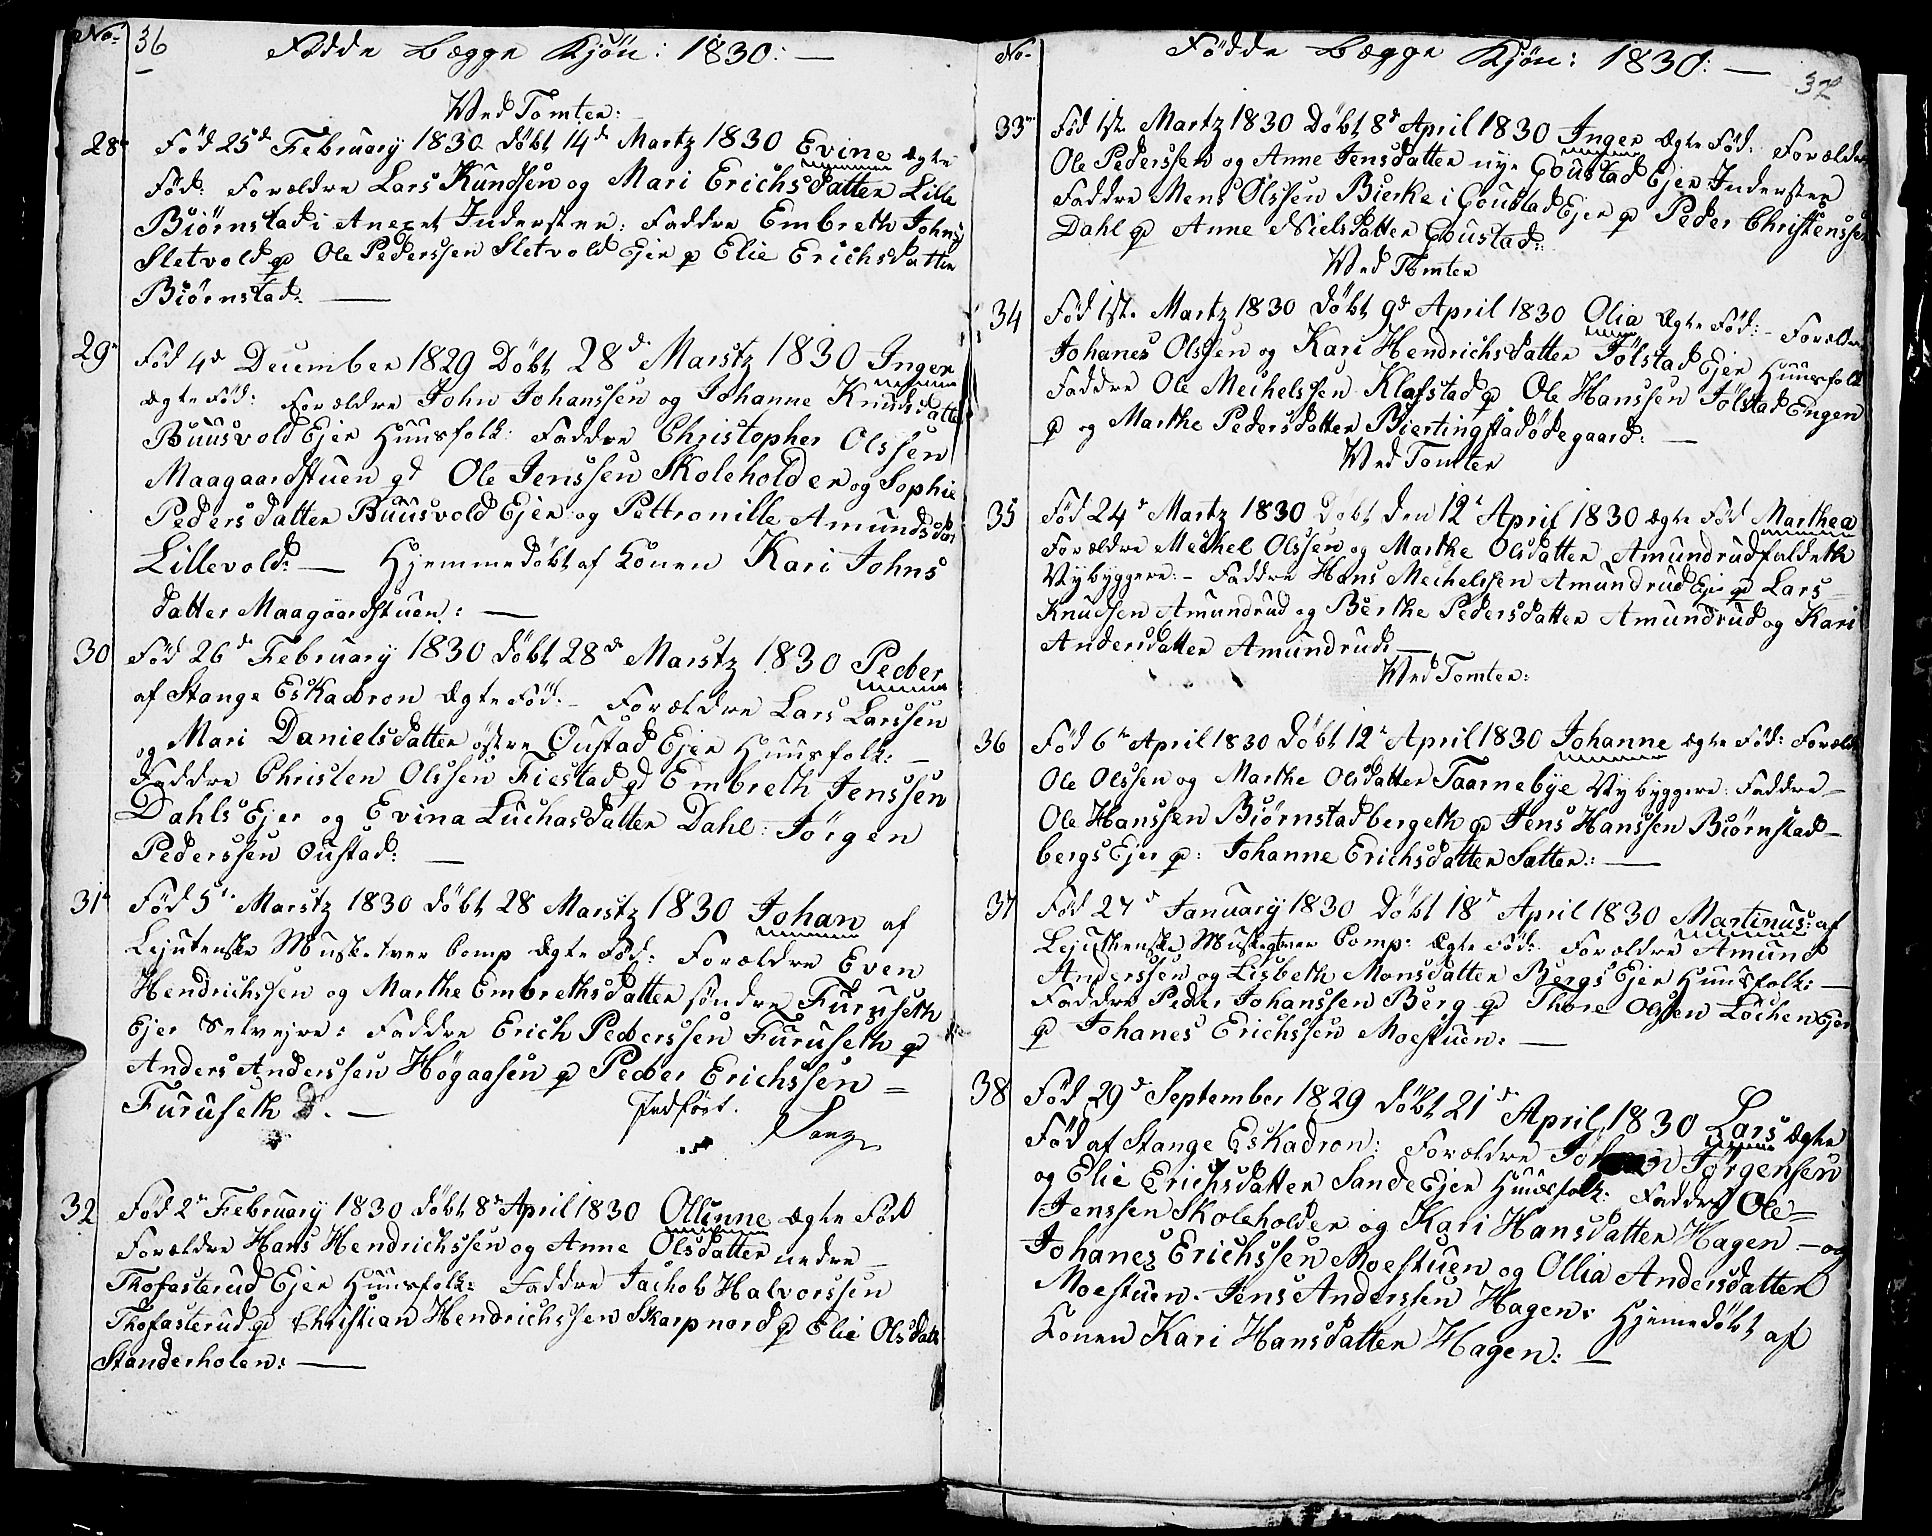 No. 36 Fødde Begge Kjøn: 1830:
Ved Tomter:
28 Fød 25d February 1830 døbt 14d Martz 1830 Evine ægte
Fød: Forældre Lars Kundsen og Mari Erichsdatter Lille
Biørnstad i Anexet Inderster: Faddre Embreth Johns
Sletvold P Ole Pederssen Sletvold Ejer P Elie Erichsdatter
Biørnstad:
29 Fød 4d December 1829 Døbt 28d Marstz 1830 Inger
ægte Fød: Forældre John Johanssen og Johanne Knudsdatter
Buusvold Ejer Huusfolk: Faddre Christopher Olssen
Maagaardstuen Ole Jenssen Skoleholder og Sophie
Pedersdatter Buusvold Ejer og Pettronille Amundsdatr
Lillevold: — Hjemmedøbt af Konen Kari Johns
datter Maagaardstuen: —
30 Fød 26d February 1830 døbt 28d Marstz 1830 Peder
af Stange EsKadron Ægte Fød: – Forældre Lars Larssen
og Mari Danielsdatter østre Oustad Ejer Huusfolk: –
Faddre Christen Olssen Fiestad P Embreth Jenssen
Dahls Ejer og Evina Luchasdatter Dahl: Jörgen
Pederssen Oustad: —
31 Fød 5t Marstz 1830 døbt 28 Marstz 1830 Johan af
Lejutenske Musketeer Comp Ægte Fød: Forældre Even
Hendrichssen og Marthe Embrethsdatter søndre Furuseth
Ejer Selvejre: Faddre Erich Pederssen Furuseth P
Anders Anderssen Høgaasen P Peder Erichssen =
Furuseth —
Indført.
32 Fød 2n February 1830 døbt 8d April 1830 Ollinne Ægte Fød
Forældre Hans Hendrichssen og Anne Olsdatter nedre –
Thofasterud Ejer Huusfolk: Faddre Jachob Halvorssen
Thofasterud P Christian Hendrichssen Skarpnord P Elie Olsdatr
Standerholen: —
No. Fødde Begge Kjøn: 1830: — 37
33 Fød 1st. Martz 1830 Døbt 8d April 1830 Inger Ægte Fød: Forældre
Ole Pederssen og Anne Jensdatter nye Goustad Ejer Inderster
Faddre Mens Olssen Bierke i Goustad Ejer P Peder Christenssen
Dahl P Anne Nielsdatter Goustad:
Ved Tomter
34 Fød 1st. Martz 1830 døbt 9d April 1830 Olia Ægte Fød: – Forældre
Johanes Olssen og Kari Hendrichsdatter Jølstad Ejer Huusfolk
Faddre Ole Meichelssen Klafstad P Ole Hanssen Jölstad Engen
P og Marthe Pedersdatter Biertingstadødegaard: —
Ved Tomter
35 Fød 24d Martz 1830 Døbt den 12t April 1830 ægte Fød Marthea
Forældre Meichel Olssen og Marthe Olsdatter Amundrudfaldeth
Nybyggere: – Faddre Hans Meichelssen Amundrud Ejer P Lars
Knudsen Amundrud og Berthe Pedersdatter Amundrud og Kari
Andersdatter Amundrud: —
Ved Tomter:
36 Fød 6te April 1830 døbt 12t April 1830 Johanne Ægte Fød: Forældr
Ole Olssen og Marthe Olsdatter Taarnebye Nybyggere: Faddre –
Ole Hanssen Biørnstadbergeth P Jens Hanssen Biørnstad –
bergs Ejer P: Johanne Erichsdatter Sætter: —
37 Fød 27d January 1830 døbt 18d April 1830 Martinus: af
Lejuthenske Musketeer Comp: Ægte Fød: Forældre Amund
Anderssen og Lisbeth Monsdatter Bergs Ejer Huusfolk: –
Faddre Peder Johanssen Berg P Thore Olssen Løchen Ejer
P Johanes Erichssen Moestuen: —
38 Fød 29d September 1829 døbt 21d April 1830 Lars Ægte
Fød af Stange EsKadron: Forældre Jørgensen
og Elie Erichsdatter Sande Ejer Huusfolk: Faddre Ole =
Jenssen Skoleholder og Kari Hansdatter Hagen – og
Johanes Erichssen Moestuen og Ollia Andersdatter
Moestuen. Jens Anderssen Hagen: Hjemedøbt af
Konen Kari Hansdatter Hagen: —